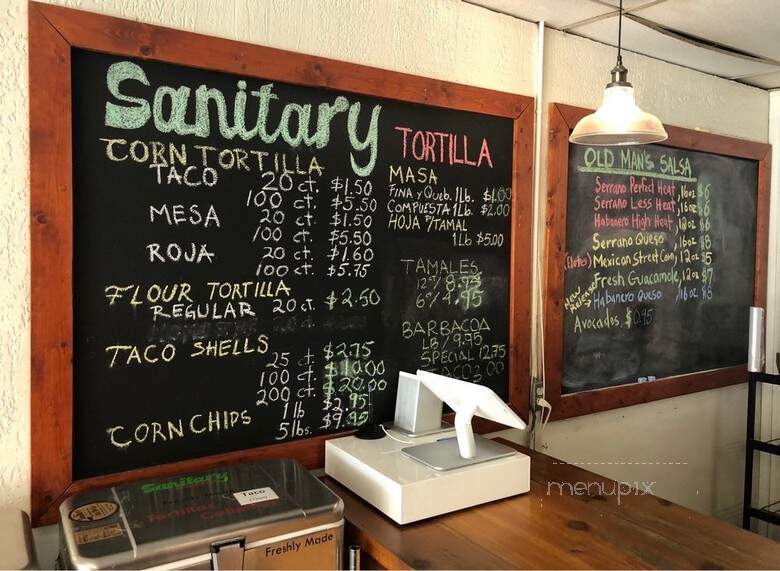 Sanitary
TORTILLA
CORN TORTILLA
TACO 20 ct. $1.50
100 ct. $5.50
MESA 20 ct. $1.50
100 ct. $5.50
ROJA 20 ct. $1.60
100 ct. $5.75
FLOUR TORTILLA
REGULAR 20 ct. $2.50
TACO SHELLS
25 ct. $2.75
100 ct. $10.00
200 ct. $20.00
CORN CHIPS 1 lb $2.95
5 lbs. $9.95
MASA
FINA y Queb. 1 Lb. $1.00
COMPUESTA 1 Lb. $2.00
HOJA P/TAMAL
1 Lb $5.00
TAMALES
12 / 8.95
6 / 4.95
BARBACOA
LB / 9.95
SPECIAL 12.75
TACO 3.00
OLD MAN'S SALSA
Serrano Perfect Heat, 16oz $6
Serrano Less Heat, 16oz $6
Habanero High Heat, 12oz $6
Serrano Queso, 16oz $8
Mexican Street Corn, 12oz $5
Fresh Guacamole, 12oz $7
New Release
Habanero Queso, 16oz $8
Avocados, $0.95
Sanitary
Taco
Freshly Made
menupix